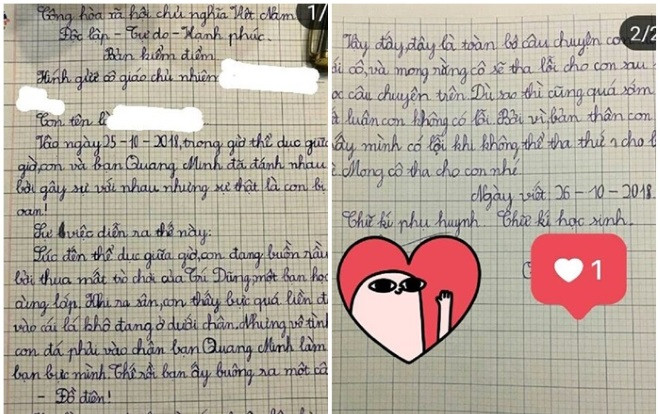 1/
Cộng hòa xã hội chủ nghĩa Việt Nam
Độc lập - Tự do - Hạnh phúc.
Bản kiểm điểm
Kính gửi cô giáo chủ nhiệm
Con tên là
Vào ngày 25-10-2018, trong giờ thể dục giữa
giờ, con và bạn Quang Minh đã đánh nhau
bởi gây sự với nhau nhưng sự thật là con bị
oan!
Sự việc diễn ra thế này:
Lúc đến thể dục giữa giờ, con đang buồn rầu
bởi thua mất trò chơi của Trí Dũng, một bạn học
cùng lớp. Khi ra sân, con thấy bực quá liền đ
vào cái lá khô đang ở dưới chân. Nhưng vô tình
con đá phải vào chân bạn Quang Minh làm
bạn bực mình. Thế rồi bạn ấy buông ra một câ
- Đồ điên!
2/2
Vậy đấy, đây là toàn bộ câu chuyện con
ối cô, và mong rằng cô sẽ tha lỗi cho con sau
ọc câu chuyện trên. Dù sao thì cũng quá sớm
t luận con không có lỗi. Bởi vì bản thân con
ấy mình có lỗi khi không thể tha thứ cho b
. Mong cô tha cho con nhé.
Ngày viết: 26-10-2018
Chữ kí phụ huynh Chữ kí học sinh.
1